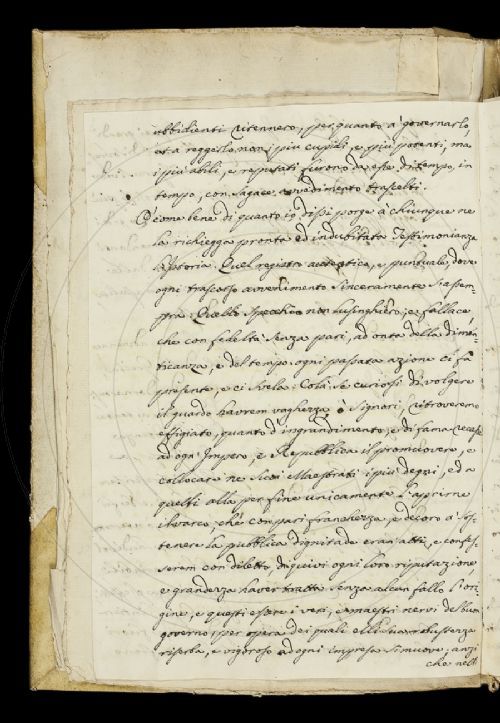 ubbidienti ritennero, per quanto a' governarlo,
et a reggerlo non i piu cupidi, e piu potenti, ma
i piu abili, e reputati furono da esse di tempo, in
tempo, con sagace avvedimento trascelti.
E come bene di quanto io dissi porge à chiunque ne
la richiegga pronta ed indubitata Testimonianza
l'Istoria. Quel registro autentico, e puntuale, dove
ogni trascorso avvenimento sinceramente s'assem-
pra. Quello Specchio non lusinghiero, e fallace,
che con fedeltà senza pari, ad onta della dimen-
ticanza, e del tempo ogni passata azione ci fà
presente, e ci svela. Colà se curiosi di volgere
il guardo havrem vaghezza ò Signori, ritroveremo
effigiato, quanto d'ingrandimento, e di fama recasse
ad ogni Impero, e Repubblica il promuovere, e
collocare ne suoi Maestrati i più degni, ed a
quelli alla per fine unicamente l'aprirne
il varco, che con pari franchezza, e decoro a sos-
tenere la pubblica dignità de eran atti, e confes-
serem con diletto di quivi ogni loro riputazione
e grandezza haver tratto senza alcun fallo l'ori-
gine, e questi essere i veri, e maestri nervi del buon
governo, per opera dei quali
riserba, e vigoroso ad ogni impresa si muove, anzi
che nell